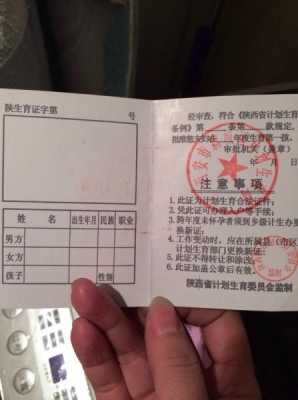 陕生育证字第 号
姓名 出生年月 民族 职业
男方
女方
孩子 性别
经审查，符合《陕西省计划生育
条例》第 条第 款规定，
批准 年度生育第一孩。
审批机关（盖章）
年 月 日
注意事项
1. 此证为计划生育合法证件；
2. 凭此证可办理入户等手续；
3. 跨年度未怀孕者须到乡级计生办更
换新证；
4. 工作变动时，应在所属县（市区）
计划生育部门更换新证；
5. 此证不得转让和涂改；
6. 此证加盖公章后有效。
陕西省计划生育委员会监制